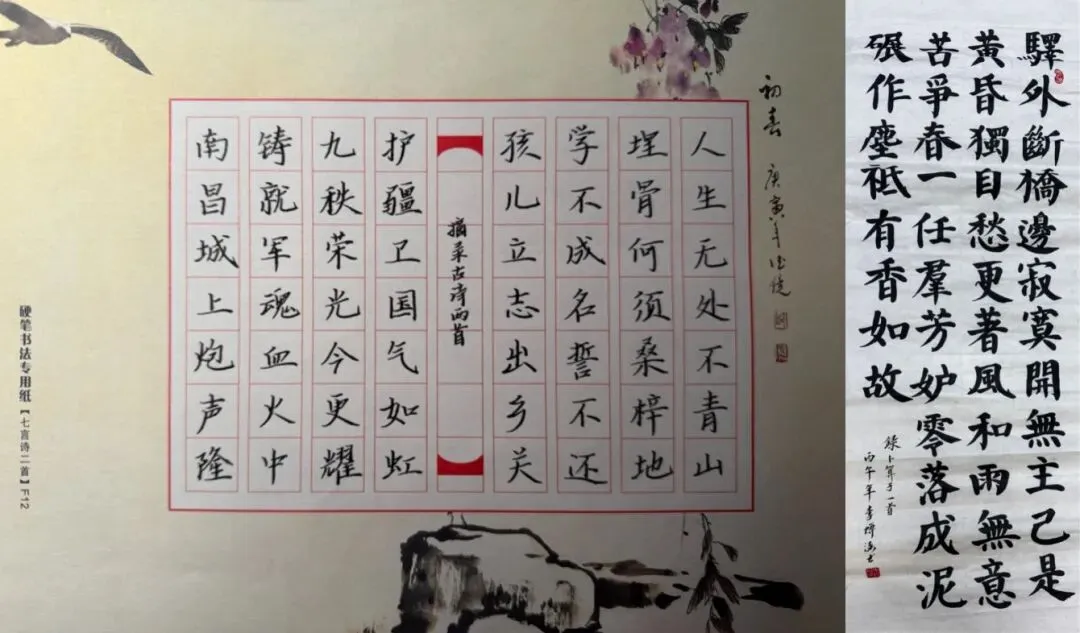 硬笔书法专用纸【七言诗二首】F12
南昌城上炮声隆
铸就军魂血火中
九秩荣光今更耀
护疆卫国气如虹
摘录古诗两首
孩儿立志出乡关
学不成名誓不还
埋骨何须桑梓地
人生无处不青山
初春 庚寅年
驛外斷橋邊寂寞開無主已是
黃昏獨自愁更著風和雨無意
苦爭春一任羣芳妒零落成泥
碾作塵祗有香如故
錄卜算子一首
丙午年李